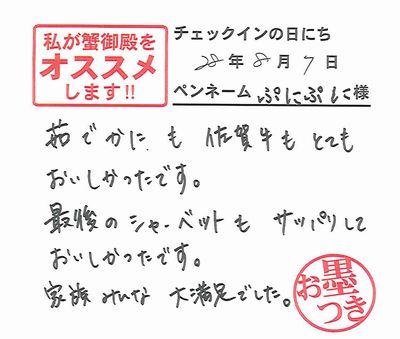 私が蟹御殿を
オススメ
します!!
チェックインの日にち
28年8月7日
ペンネーム ぷにぷに様
茹でかにも 佐賀牛もとても
おいしかったです。
最後のシャーベットも サッパリして
おいしかったです。
家族みんな 大満足でした。
お墨
つき